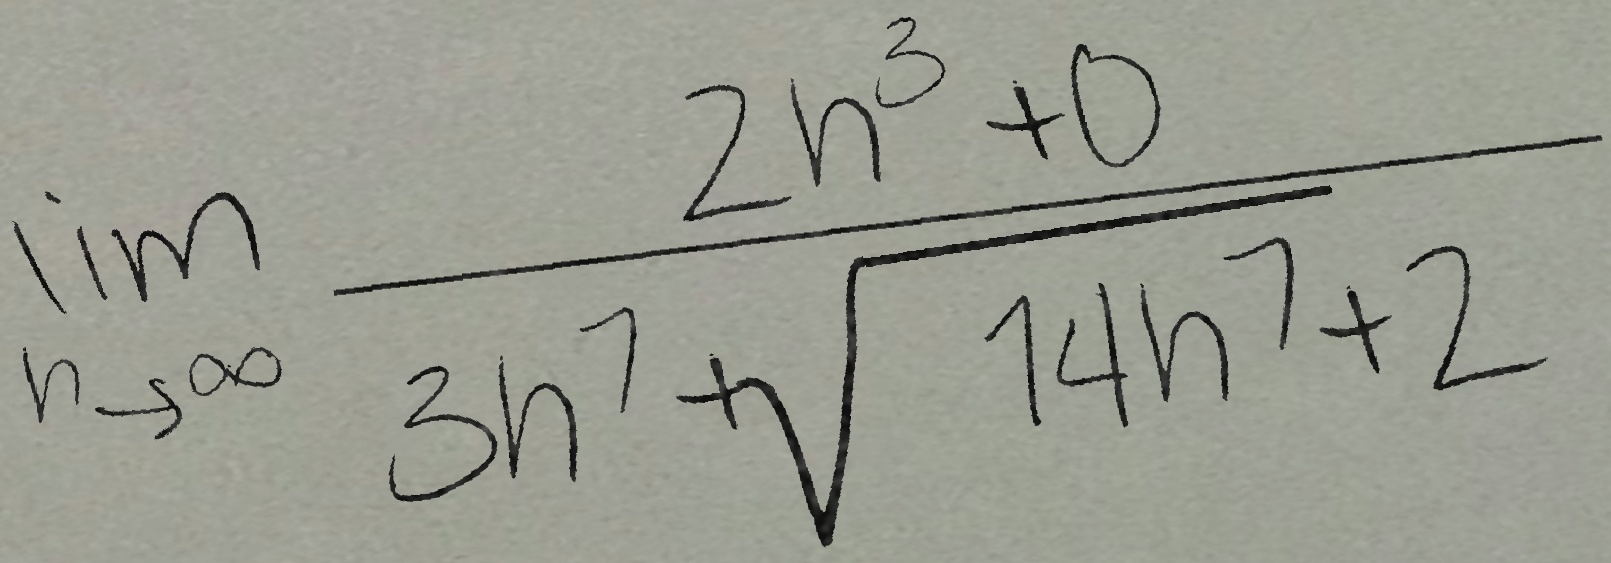 \lim_{n \to \infty} \frac{2n^3+0}{3n^7+\sqrt{14n^7+2}}